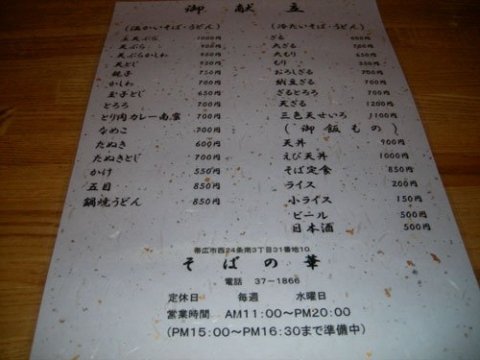 御献立
(温かいそば・うどん)
上天ぷら 1000円
天ぷら 900円
天ぷらかしわ 950円
天とじ 950円
親子 750円
かしわ 700円
玉子とじ 650円
とろろ 700円
とり肉カレー南蛮 700円
なめこ 700円
たぬき 600円
たぬきとじ 700円
かけ 550円
五目 850円
鍋焼うどん 850円
(冷たいそば・うどん)
ざる 600円
大ざる 700円
大もり 650円
もり 550円
おろしざる 700円
納豆ざる 700円
ざるとろろ 700円
天ざる 1200円
三色天せいろ 1100円
(御飯もの)
天丼 900円
えび天丼 1000円
そば定食 850円
ライス 200円
小ライス 150円
ビール 500円
日本酒 500円
帯広市西24条南3丁目31番地10
そばの華
電話 37-1866
定休日 毎週 水曜日
営業時間 AM11:00～PM20:00
(PM15:00～PM16:30まで準備中)